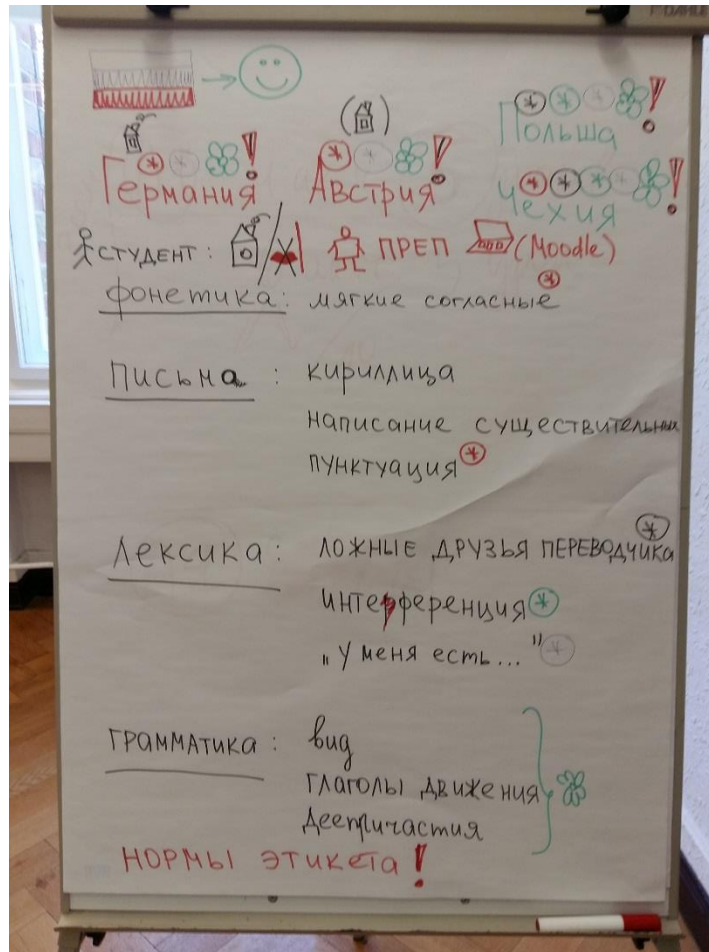 Польша!
Германия! Австрия! Чехия!
студент: / преп (Moodle)
фонетика: мягкие согласные
письма: кириллица
написание существительных
пунктуация
Лексика: ложные друзья переводчика
интерференция
„у меня есть..."
грамматика: вид
глаголы движения
деепричастия
НОРМЫ ЭТИКЕТА!